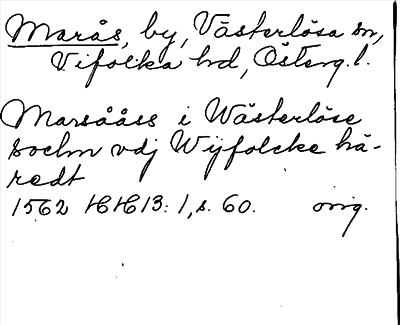 Marås, by, Västerlösa sn,
Vifolka hd, Österg. l.
Marsååss i Wästerlöse
sochn vdj Wijfolcke hä-
redt
1562 HH13: 1, s. 60. orig.